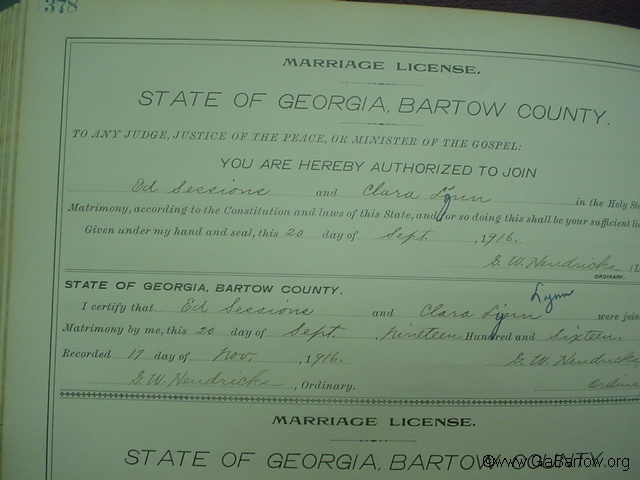 378
MARRIAGE LICENSE.
STATE OF GEORGIA, BARTOW COUNTY.
TO ANY JUDGE, JUSTICE OF THE PEACE, OR MINISTER OF THE GOSPEL:
YOU ARE HEREBY AUTHORIZED TO JOIN
Ed Sessions and Clara Lynn in the Holy Sta
Matrimony, according to the Constitution and laws of this State, and for so doing this shall be your sufficient lic
Given under my hand and seal, this 20 day of Sept. , 1916.
G. W. Hendricks (L
ORDINARY.
STATE OF GEORGIA, BARTOW COUNTY.
Lynn
I certify that Ed Sessions and Clara Lynn were join
Matrimony by me, this 20 day of Sept. , Nineteen Hundred and Sixteen.
Recorded 17 day of Nov. , 1916. G. W. Hendricks
G. W. Hendricks , Ordinary. Ordina
MARRIAGE LICENSE.
STATE OF GEORGIA, BARTOW COUNTY.
©www.GaBartow.org